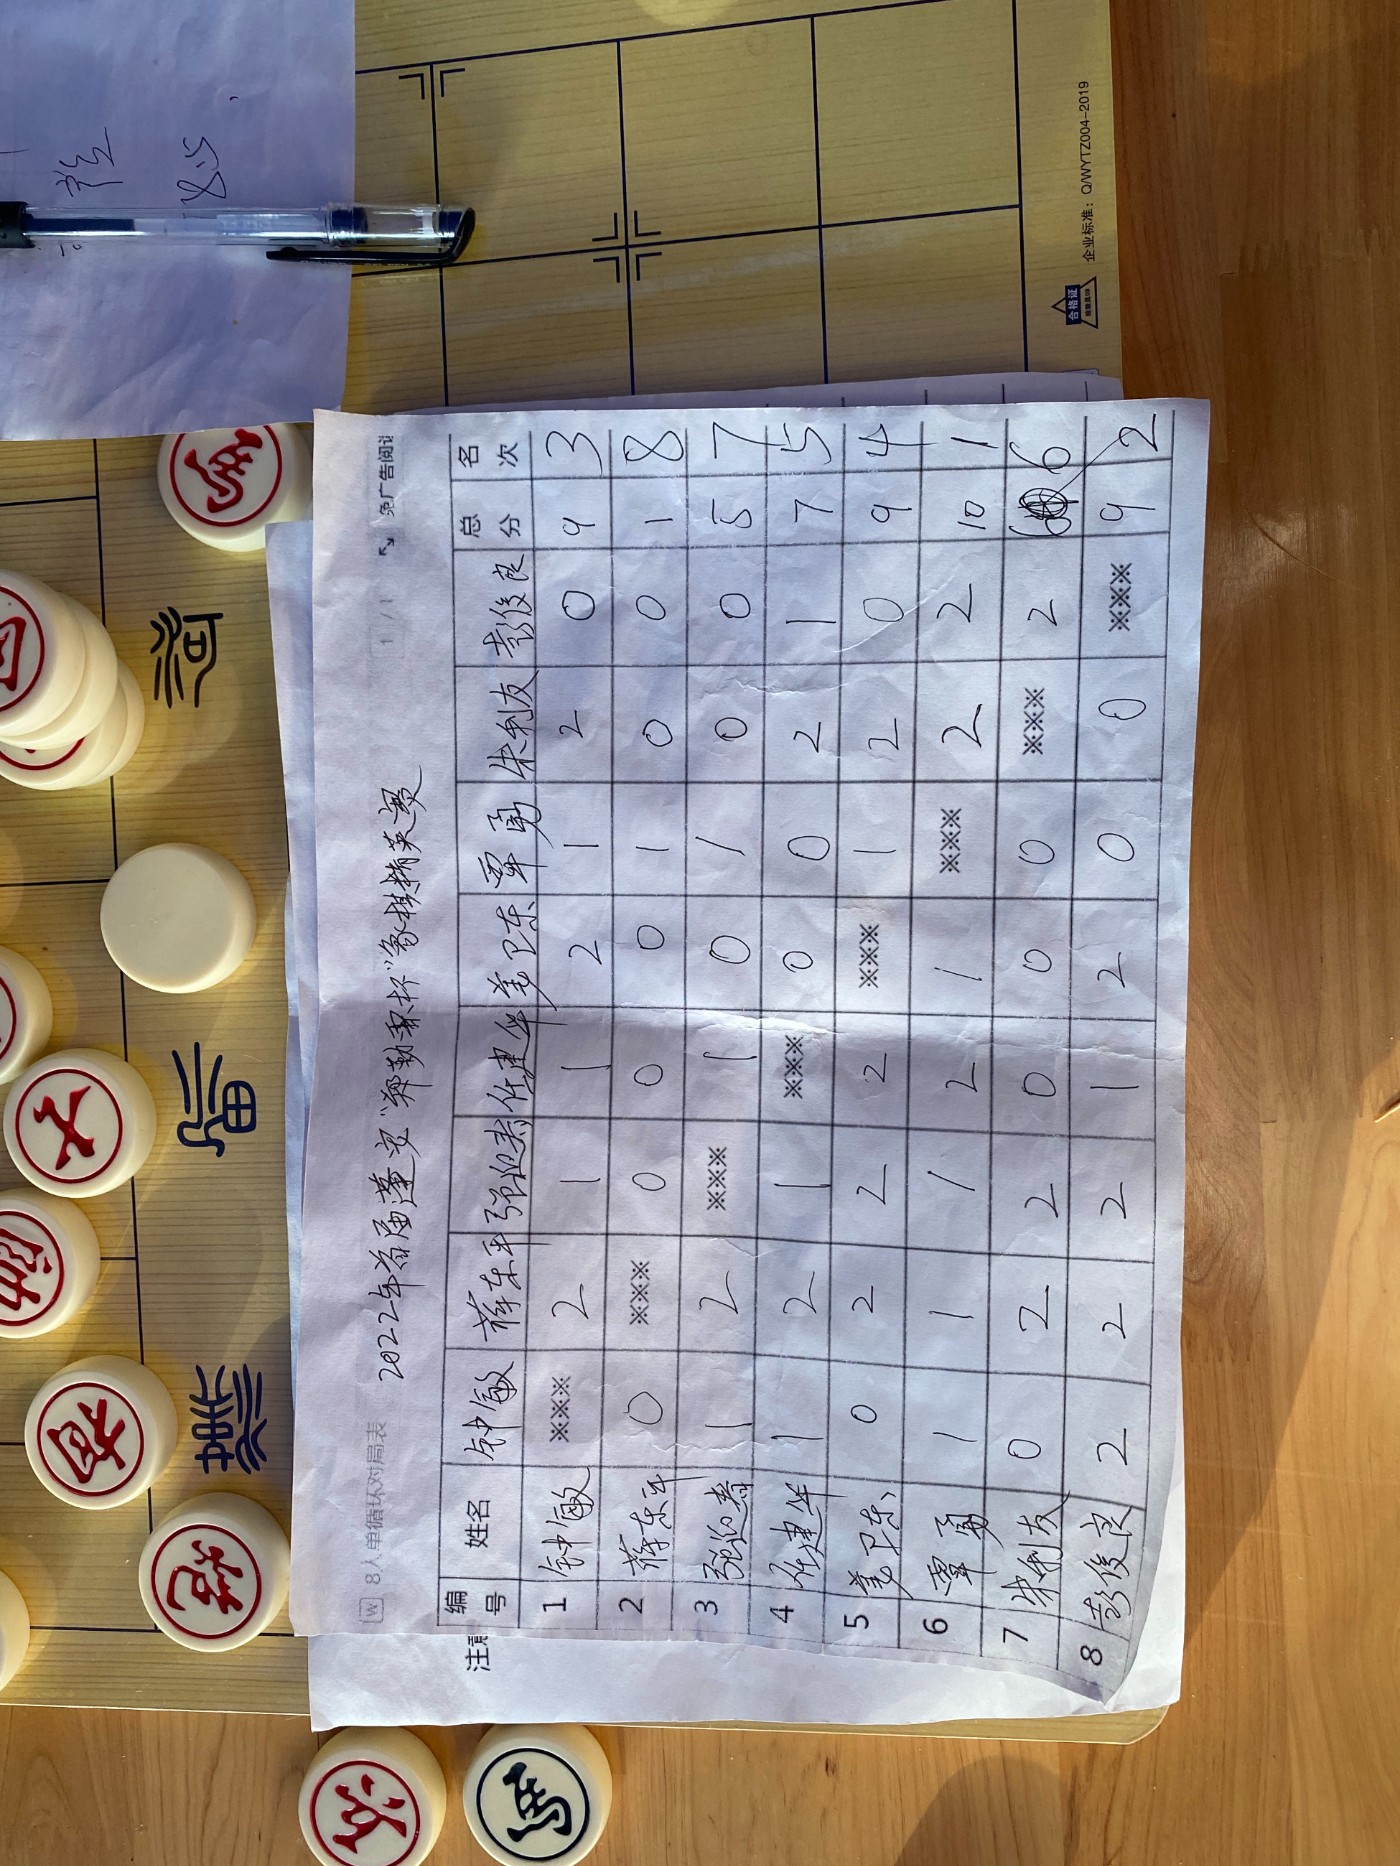 8人单循环对局表
1 / 1
免广告阅读
2022年首届蓬安"郑勒泰杯"象棋精英赛
编号 姓名 钟敏 蒋东平 张迎春 任建华 姜卫东 覃勇 朱利友 彭俊良 总分 名次
1 钟敏 ※※※ 2 1 1 2 1 2 0 9 3
2 蒋东平 0 ※※※ 0 0 0 1 0 0 1 8
3 张迎春 1 2 ※※※ 1 0 1 0 0 5 7
4 任建华 1 2 1 ※※※ 0 0 2 1 7 5
5 姜卫东 0 2 2 2 ※※※ 1 2 0 9 4
6 覃勇 1 1 1 2 1 ※※※ 2 2 10 1
7 朱利友 0 2 2 0 0 0 ※※※ 2 6 6
8 彭俊良 2 2 2 1 2 0 0 ※※※ 9 2
注意
企业标准：Q/WYTZ004-2019
合格证
河
界
楚
相
帥
炮
馬